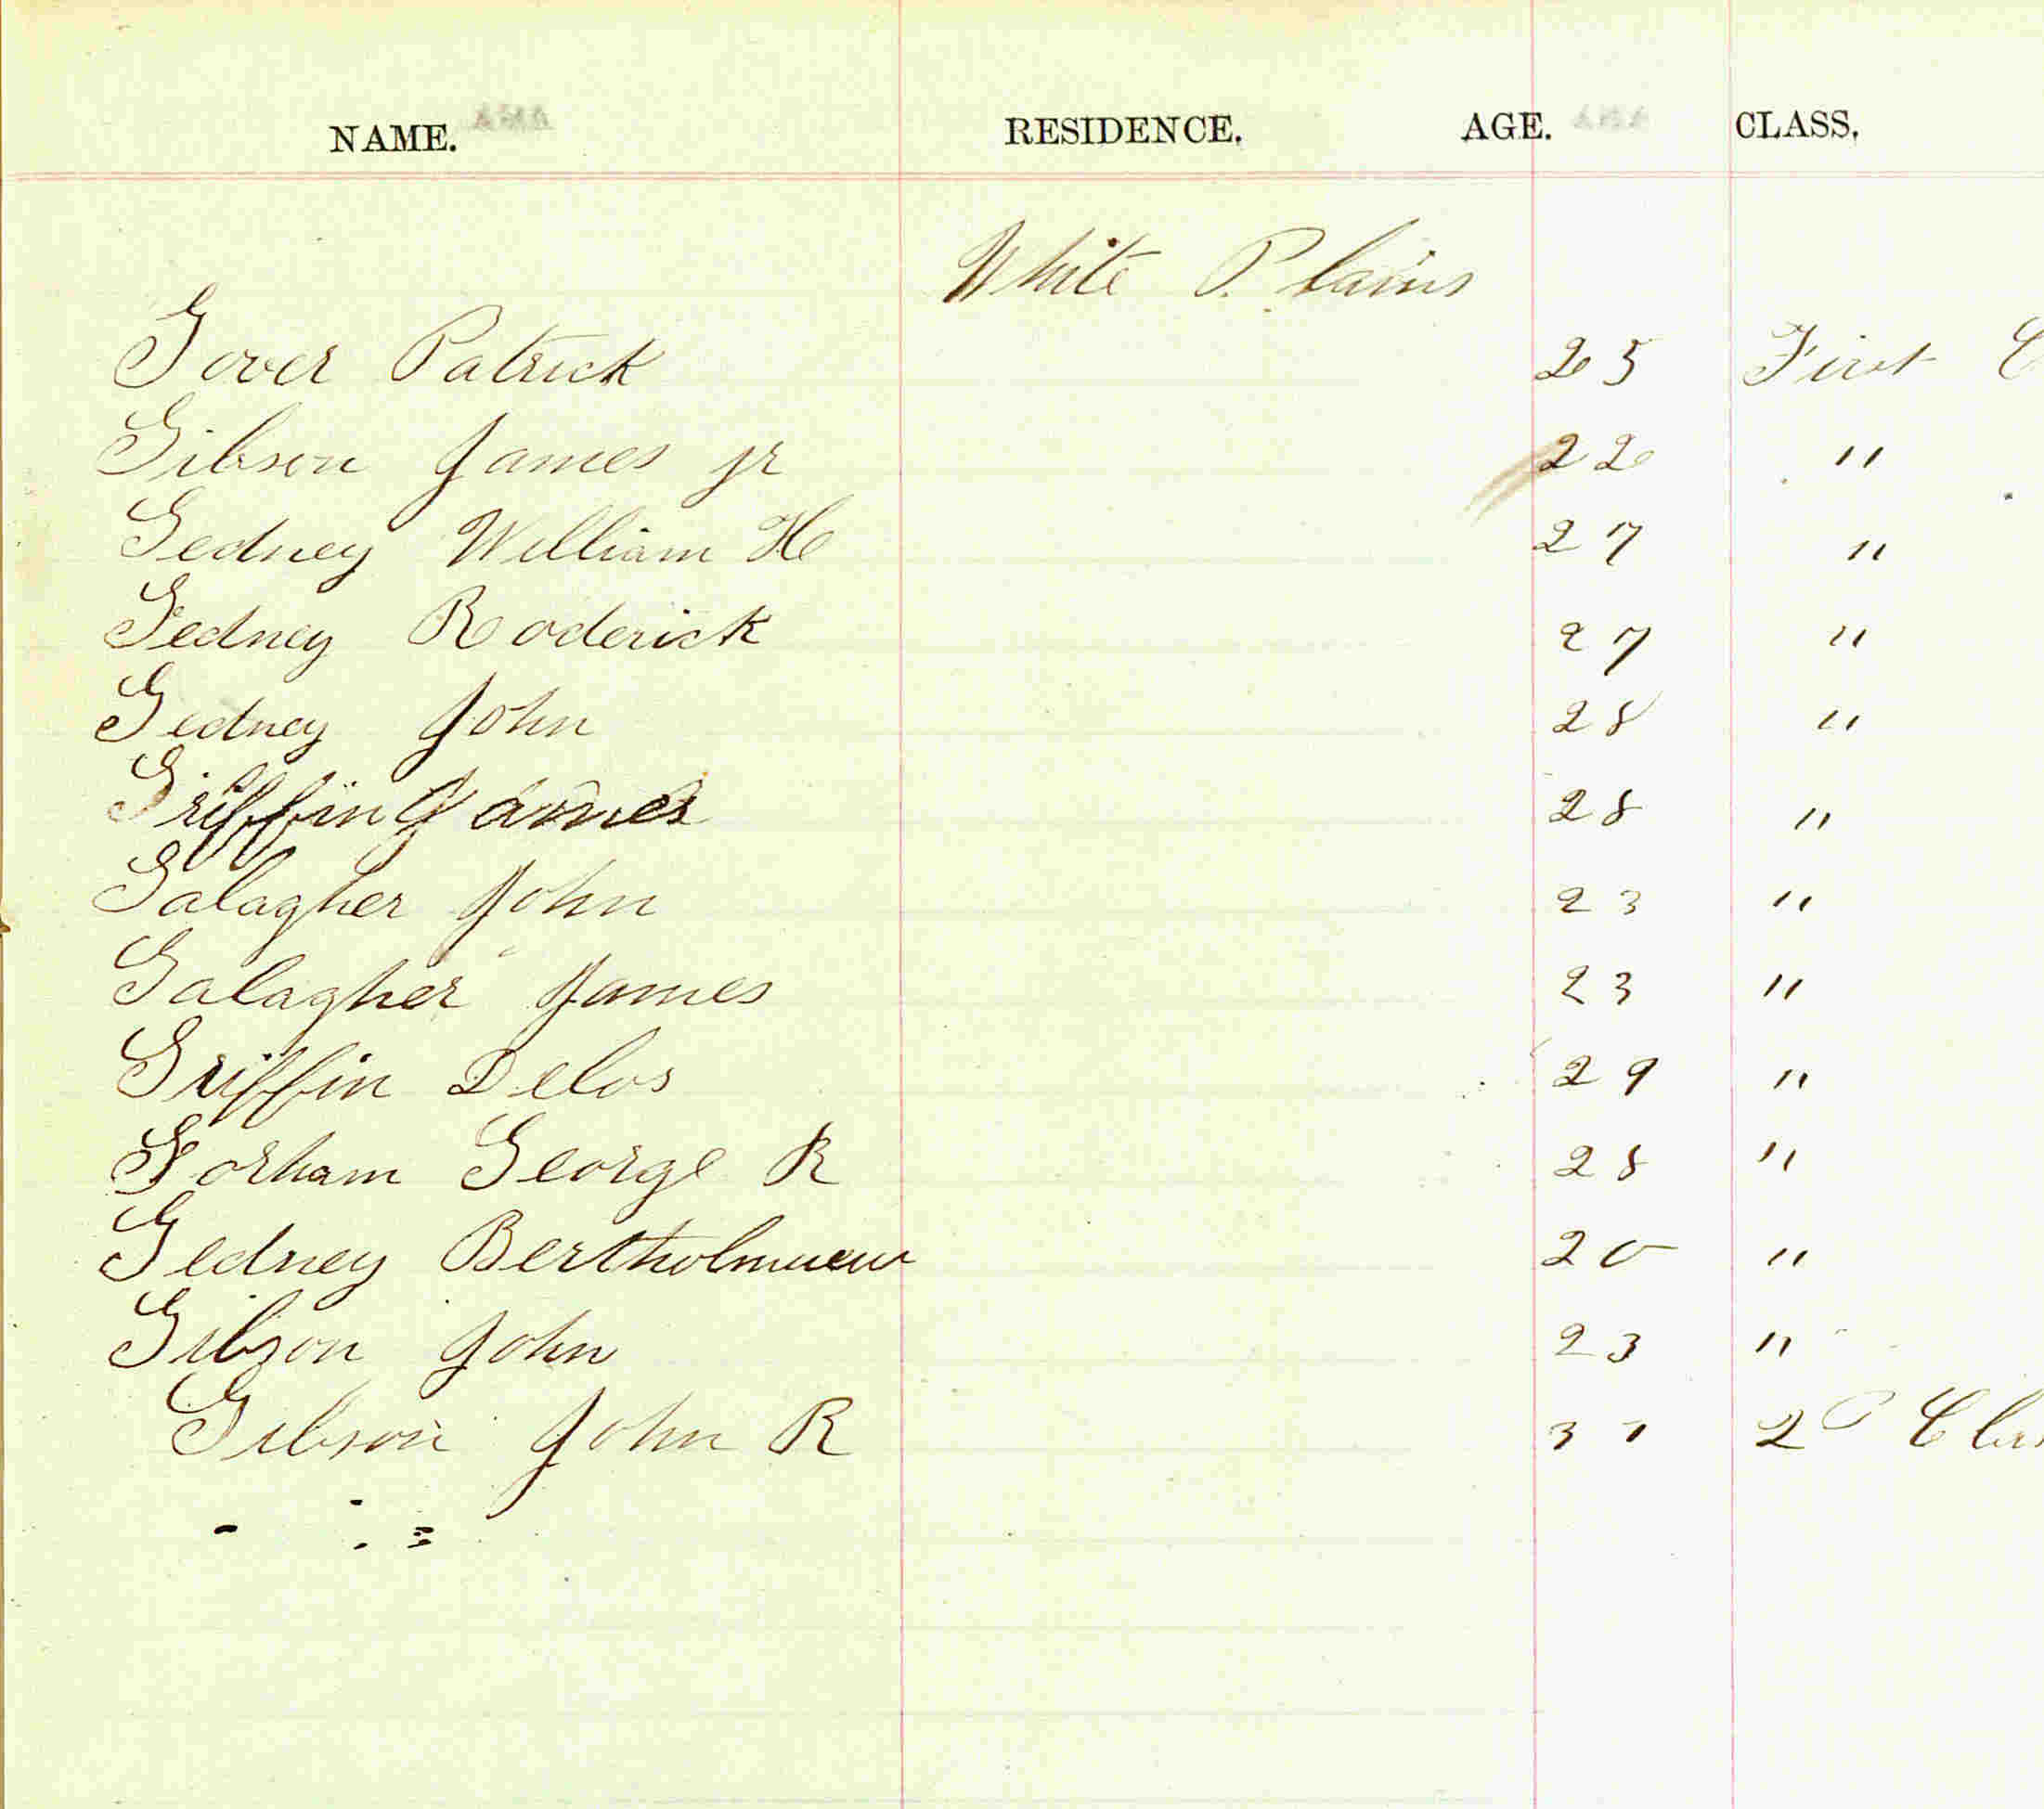 NAME. RESIDENCE. AGE. CLASS.
White Plains
Gover Patrick 25 First C
Gibson James jr 22 "
Gedney William H 27 "
Gedney Roderick 27 "
Gedney John 28 "
Griffin James 28 "
Galagher John 23 "
Galagher James 23 "
Griffin Delos 29 "
Gorham George R 28 "
Gedney Bertholmuew 20 "
Gibson John 23 "
Gibson John R 37 2D Clas